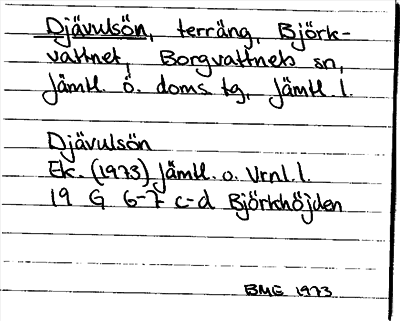 Djävulsön, terräng, Björk-
vattnet, Borgvattnets sn,
Jämtl. ö. doms tg, Jämtl. l.
Djävulsön
Ek. (1973) Jämtl. o. Vrnl. l.
19 G 6-7 c-d Björkhöjden
BME 1973